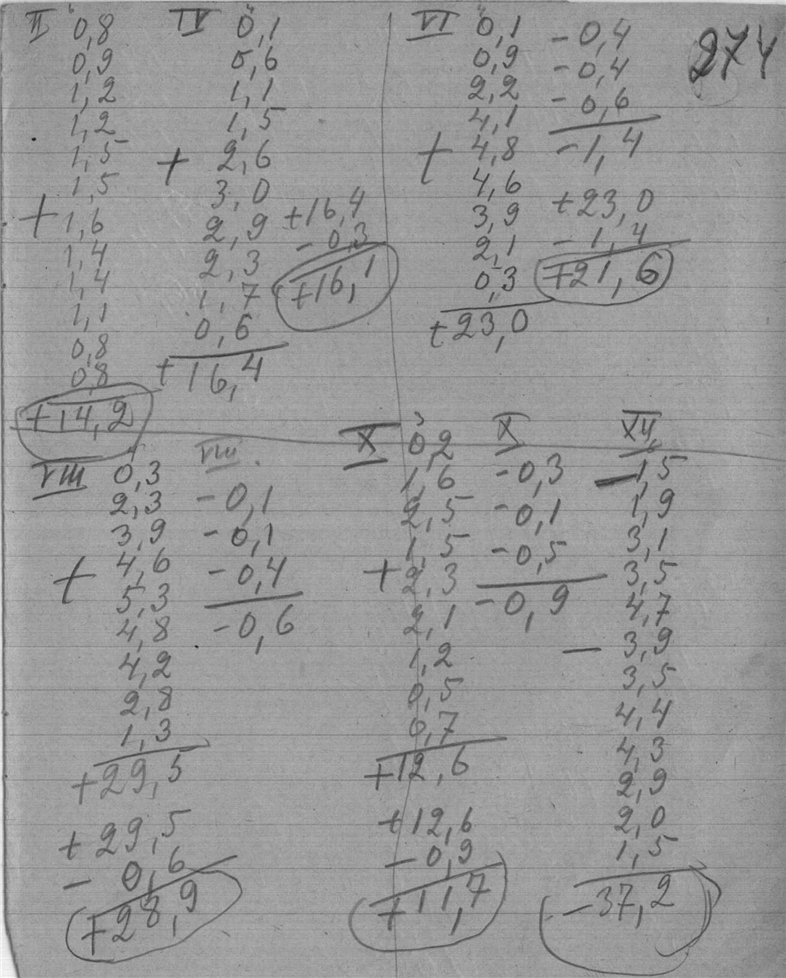 274
II 0,8
0,9
1,2
1,2
1,5
1,5
+ 1,6
1,4
1,4
1,1
0,8
0,8
+14,2
IV 0,1
0,6
1,1
1,5
+ 2,6
3,0
2,9
2,3
1,7
0,6
+16,4
+16,4
-0,3
+16,1
VI 0,1
0,9
2,2
4,1
+ 4,8
4,6
3,9
2,1
0,3
+23,0
-0,4
-0,4
-0,6
-1,4
+23,0
-1,4
+21,6
VIII 0,3
2,3
3,9
+ 4,6
5,3
4,8
4,2
2,8
1,3
+29,5
+29,5
- 0,6
+28,9
VIII
-0,1
-0,1
-0,4
-0,6
X 0,2
1,6
2,5
1,5
+ 2,3
2,1
1,2
0,5
0,7
+12,6
+12,6
-0,9
+11,7
X
-0,3
-0,1
-0,5
-0,9
XII
-1,5
1,9
3,1
3,5
4,7
- 3,9
3,5
4,4
4,3
2,9
2,0
1,5
-37,2